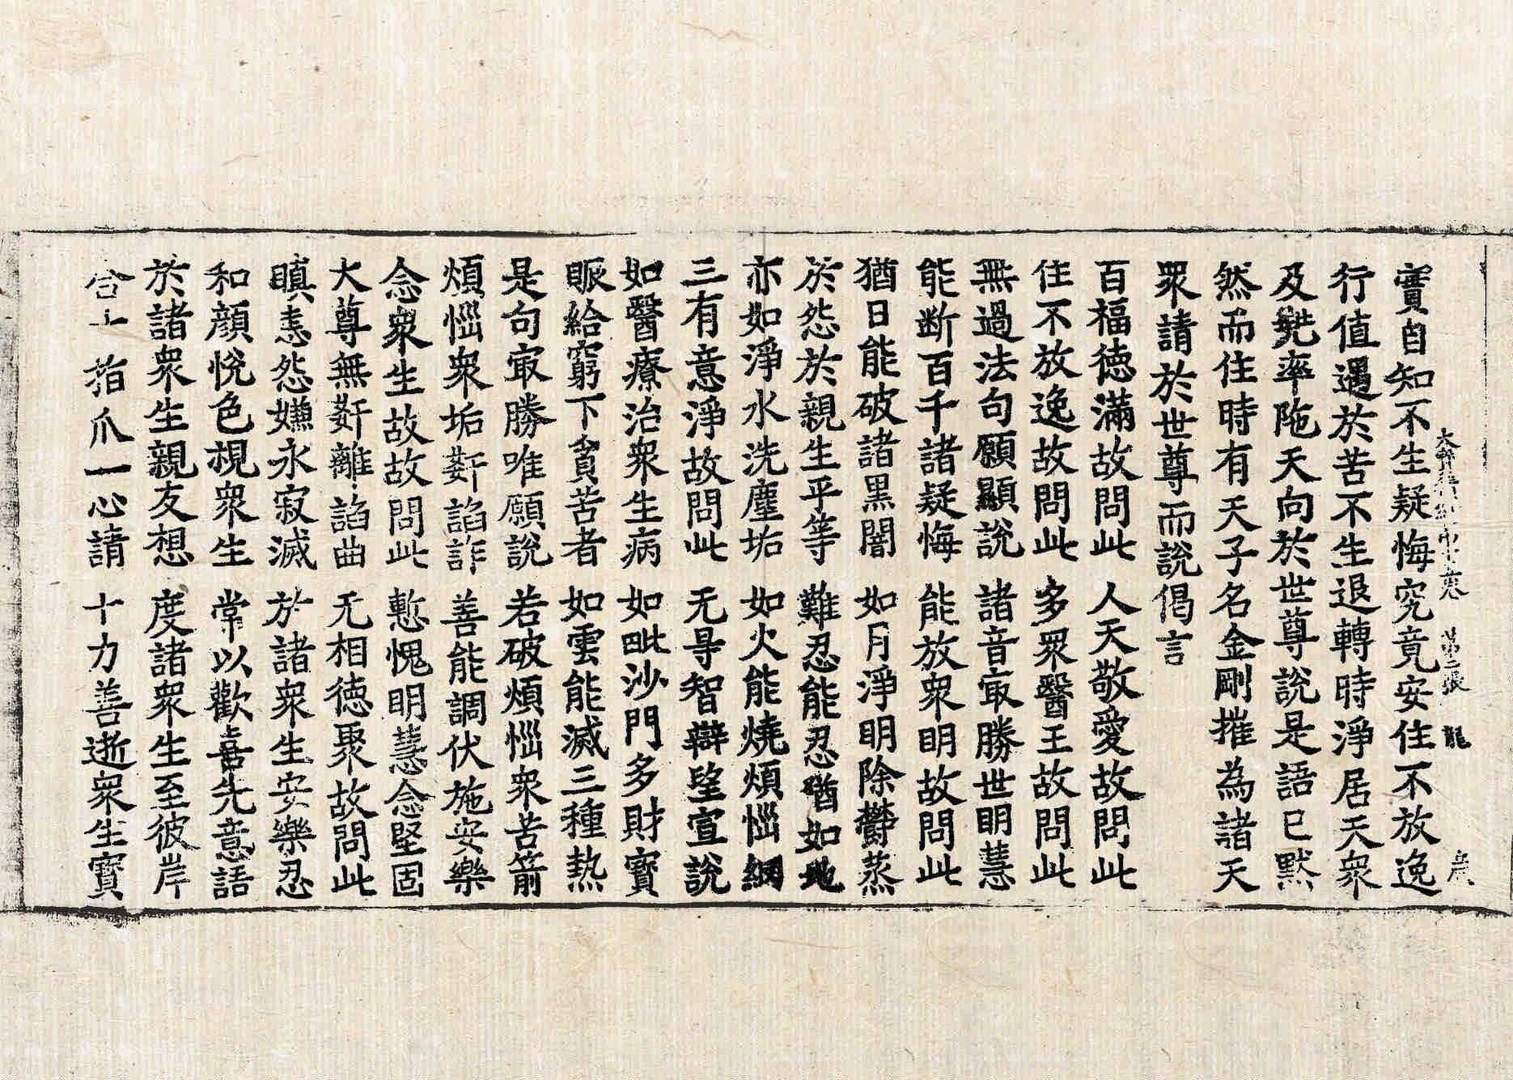 大寶積經 第二張 龍
實自知不生疑悔究竟安住不放逸
行值遇於苦不生退轉時淨居天衆
及兠率陁天向於世尊說是語已默
然而住時有天子名金剛摧為諸天
衆請於世尊而說偈言
百福德滿故問此 人天敬愛故問此
住不放逸故問此 多衆醫王故問此
無過法句願顯說 諸音㝡勝世明慧
能断百千諸疑悔 能放衆明故問此
猶日能破諸黒闇 如月淨明除欝蒸
於怨於親生平等 難忍能忍猶如地
亦如淨水洗塵垢 如火能燒煩惱網
三有意淨故問此 无㝵智辯堅宣說
如醫療治衆生病 如毗沙門多財寶
賑給窮下貧苦者 如雲能滅三種熱
是句㝡勝唯願說 若破煩惱衆苦箭
煩惱衆垢姧諂詐 善能調伏施安樂
念衆生故故問此 慙愧明慧念堅固
大尊無姧離諂曲 无相德聚故問此
瞋恚怨嫌永寂滅 於諸衆生安樂忍
和顔悅色視衆生 常以歡喜先意語
於諸衆生親友想 度諸衆生至彼岸
合十指爪一心請 十力善逝衆生寶